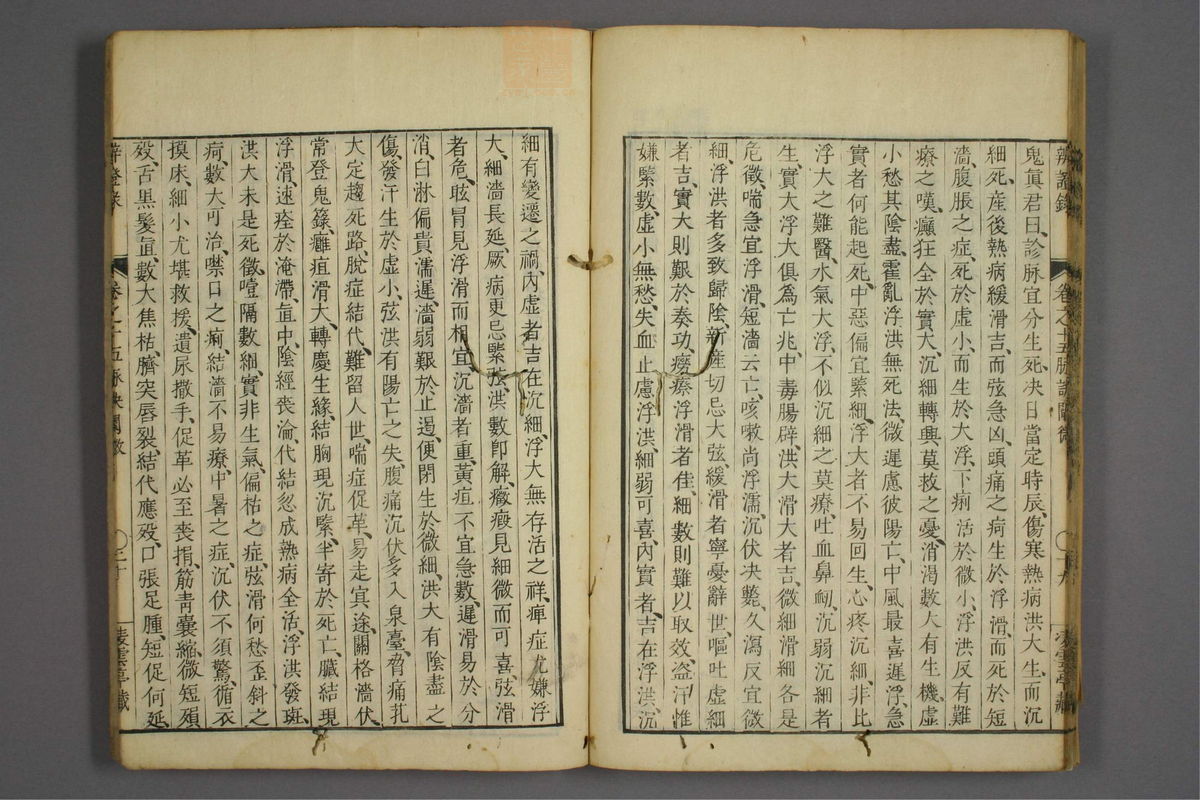 鬼眞君曰、診脉宜分生死、决日當定時辰、傷寒熱病洪大生而沉
細死、産後熱病緩滑吉、而弦急凶、頭痛之疴生於浮滑、而死於短
濇、腹脹之症、死於虛小、而生於大浮、下痢活於微小、浮洪反有難
療之嘆、癲狂全於實大、沉細轉興莫救之憂、消渴數大有生機、虛
小愁其陰盡、霍亂浮洪無死法、微遲慮彼陽亡、中風最喜遲浮、急
實者何能起死、中惡偏宜紧細、浮大者不易回生、心疼沉細、非比
浮大之難醫、水氣大浮、不似沉細之莫療、吐血鼻衂、沉弱沉細者
生、實大浮大俱爲亡兆、中毒腸辟、洪大滑大者吉、微細滑細各是
危徵、喘急宜浮滑、短濇云亡、咳嗽尚浮濡、沉伏决斃、久瀉反宜微
細、浮洪者多致歸陰、新産切忌大弦、緩滑者寧憂辭世、嘔吐虛細
者吉、實大則艱於奏功、癆瘵浮滑者佳、細數則難以取效、盗汗惟
嫌緊數、虛小無愁、失血止慮浮洪、細弱可喜、內實者、吉在浮洪、沉
細有變遷之禍、內虛者吉在沉細、浮大無存活之祥、痺症尤嫌浮
大、細濇長延、厥病更忌緊弦、洪數卽解、癥瘕見細微而可喜、弦滑
者危、眩冒見浮滑而相宜、沉濇者重、黃疸不宜急數、遲滑易於分
消、白淋偏貴濡遲、濇弱艱於止遏、便閉生於微細、洪大有陰盡之
傷、發汗生於虛小、弦洪有陽亡之失、腹痛沉伏、多入泉臺、脅痛芤
大定趨死路、脫症結代、難留人世、喘症促革、易走冥途、關格濇伏
常登鬼籙、癰疽滑大、轉慶生緣、結胸現沉緊、半寄於死亡、臟結現
浮滑、速痊於淹滯、直中陰經喪淪、代結忽成熱病全活、浮洪發斑、
洪大未是死徵、噎隔數細、實非生氣、偏枯之症、弦滑何愁、歪斜之
疴、數大可治、噤口之痢、結濇不易療、中暑之症、沉伏不須驚、循衣
摸床、細小尤堪救援、遺尿撒手、促革必至喪捐、筋靑囊縮、微短殞
歿、舌黒髮直、數大焦枯、臍突唇裂、結代應歿、口張足腫、短促何延